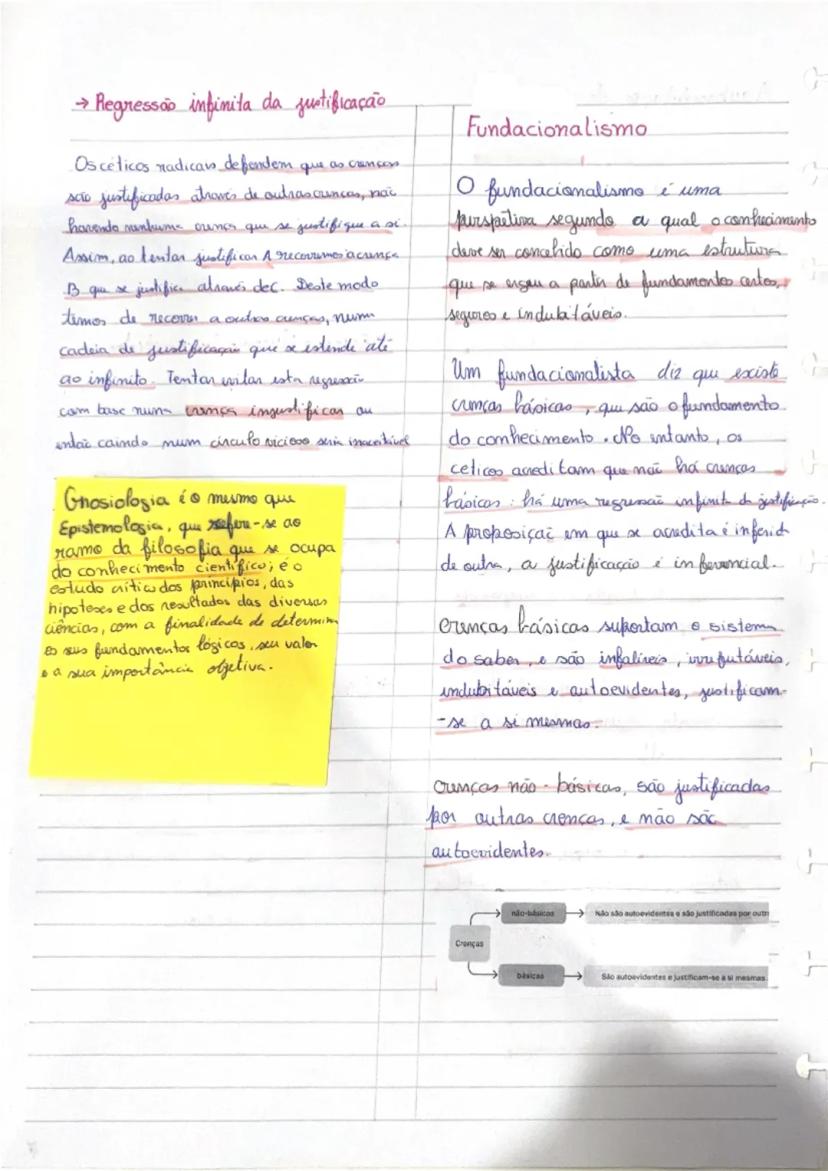 → Regressão infinita da justificação
Os céticos radicais defendem que as crenças
são justificadas através de outras crenças, não
havendo nenhuma crença que se justifique a si.
Assim, ao tentar justificar A recorremos à crença
B que se justifica através de C. Deste modo
temos de recorrer a outras crenças, numa
cadeia de justificação que se estende até
ao infinito. Tentar evitar esta regressão
com base numa crença injustificar ou
então caindo num círculo vicioso seria inaceitável
Gnosiologia é o mesmo que
Epistemologia, que refere-se ao
ramo da filosofia que se ocupa
do conhecimento científico; é o
estudo crítico dos princípios, das
hipoteses e dos resultados das diversas
ciências, com a finalidade de determin
os seus fundamentos lógicos, seu valor
e a sua importância objetiva.
Fundacionalismo
O fundacionalismo é uma
perspetiva segundo a qual o conhecimento
deve ser concebido como uma estrutura
que se ergue a partir de fundamentos certos,
seguros e indubitáveis.
Um fundacionalista diz que existe
crenças básicas, que são o fundamento
do conhecimento. No entanto, os
ceticos acreditam que não há crenças
básicas: há uma regressão infinita da justificação.
A proposição em que se acredita é inferida
de outra, a justificação é inferencial.
Crenças básicas suportam o sistema
do saber, e são infalíveis, irrefutáveis,
indubitáveis e autoevidentes, justificam-
-se a si mesmas.
Crenças não-básicas, são justificadas
por outras crenças, e não são
autoevidentes.
Crenças
não-básicas
Não são autoevidentes e são justificadas por outr
básicas
São autoevidentes e justificam-se a si mesmas.